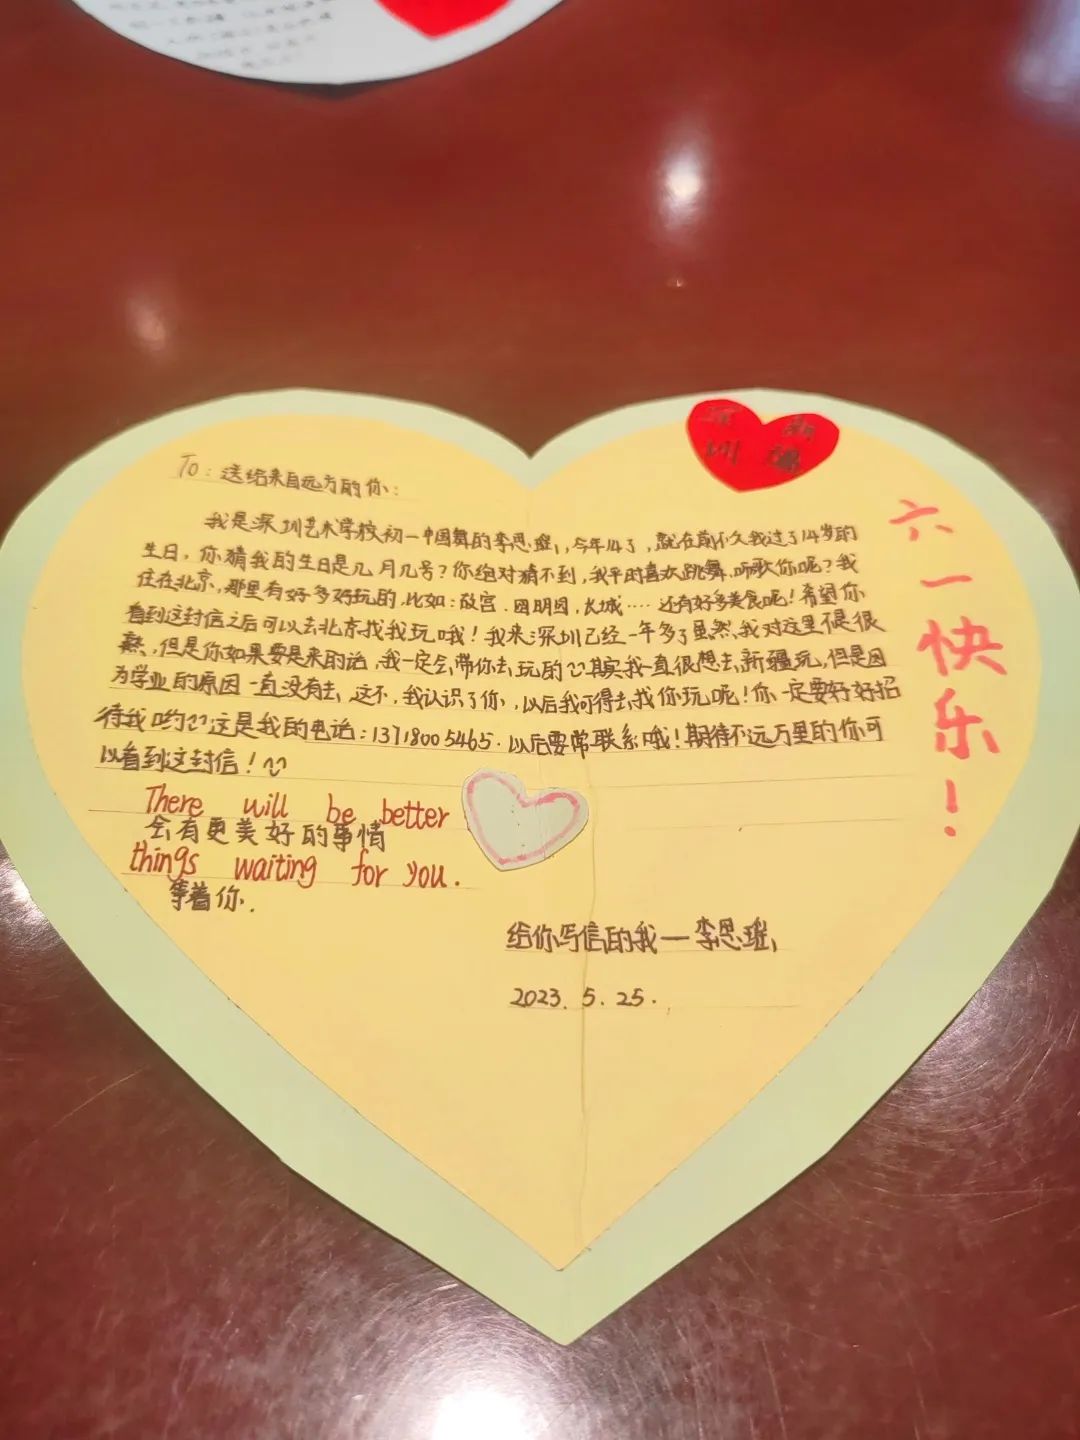 深 新
圳 疆
To：送给来自远方的你：
六一快乐！
我是深圳艺术学校初一中国舞的李思瑶，今年14了，就在前不久我过了14岁的
生日，你猜我的生日是几月几号？你绝对猜不到，我平时喜欢跳舞、听歌你呢？我
住在北京，那里有好多好玩的，比如：故宫、圆明园，长城……还有好多美食呢！希望你
看到这封信之后可以去北京找我玩哦！我来深圳已经一年多了虽然我对这里不是很
熟，但是你如果要是来的话，我一定会带你去玩的~其实我一直很想去新疆玩，但是因
为学业的原因一直没有去，这不，我认识了你，以后我可得去找你玩呢！你一定要好好招
待我哟~这是我的电话：13718005465. 以后要常联系哦！期待不远万里的你可
以看到这封信！
There will be better
会有更美好的事情
things waiting for you.
等着你.
给你写信的我—李思
2023. 5. 25.